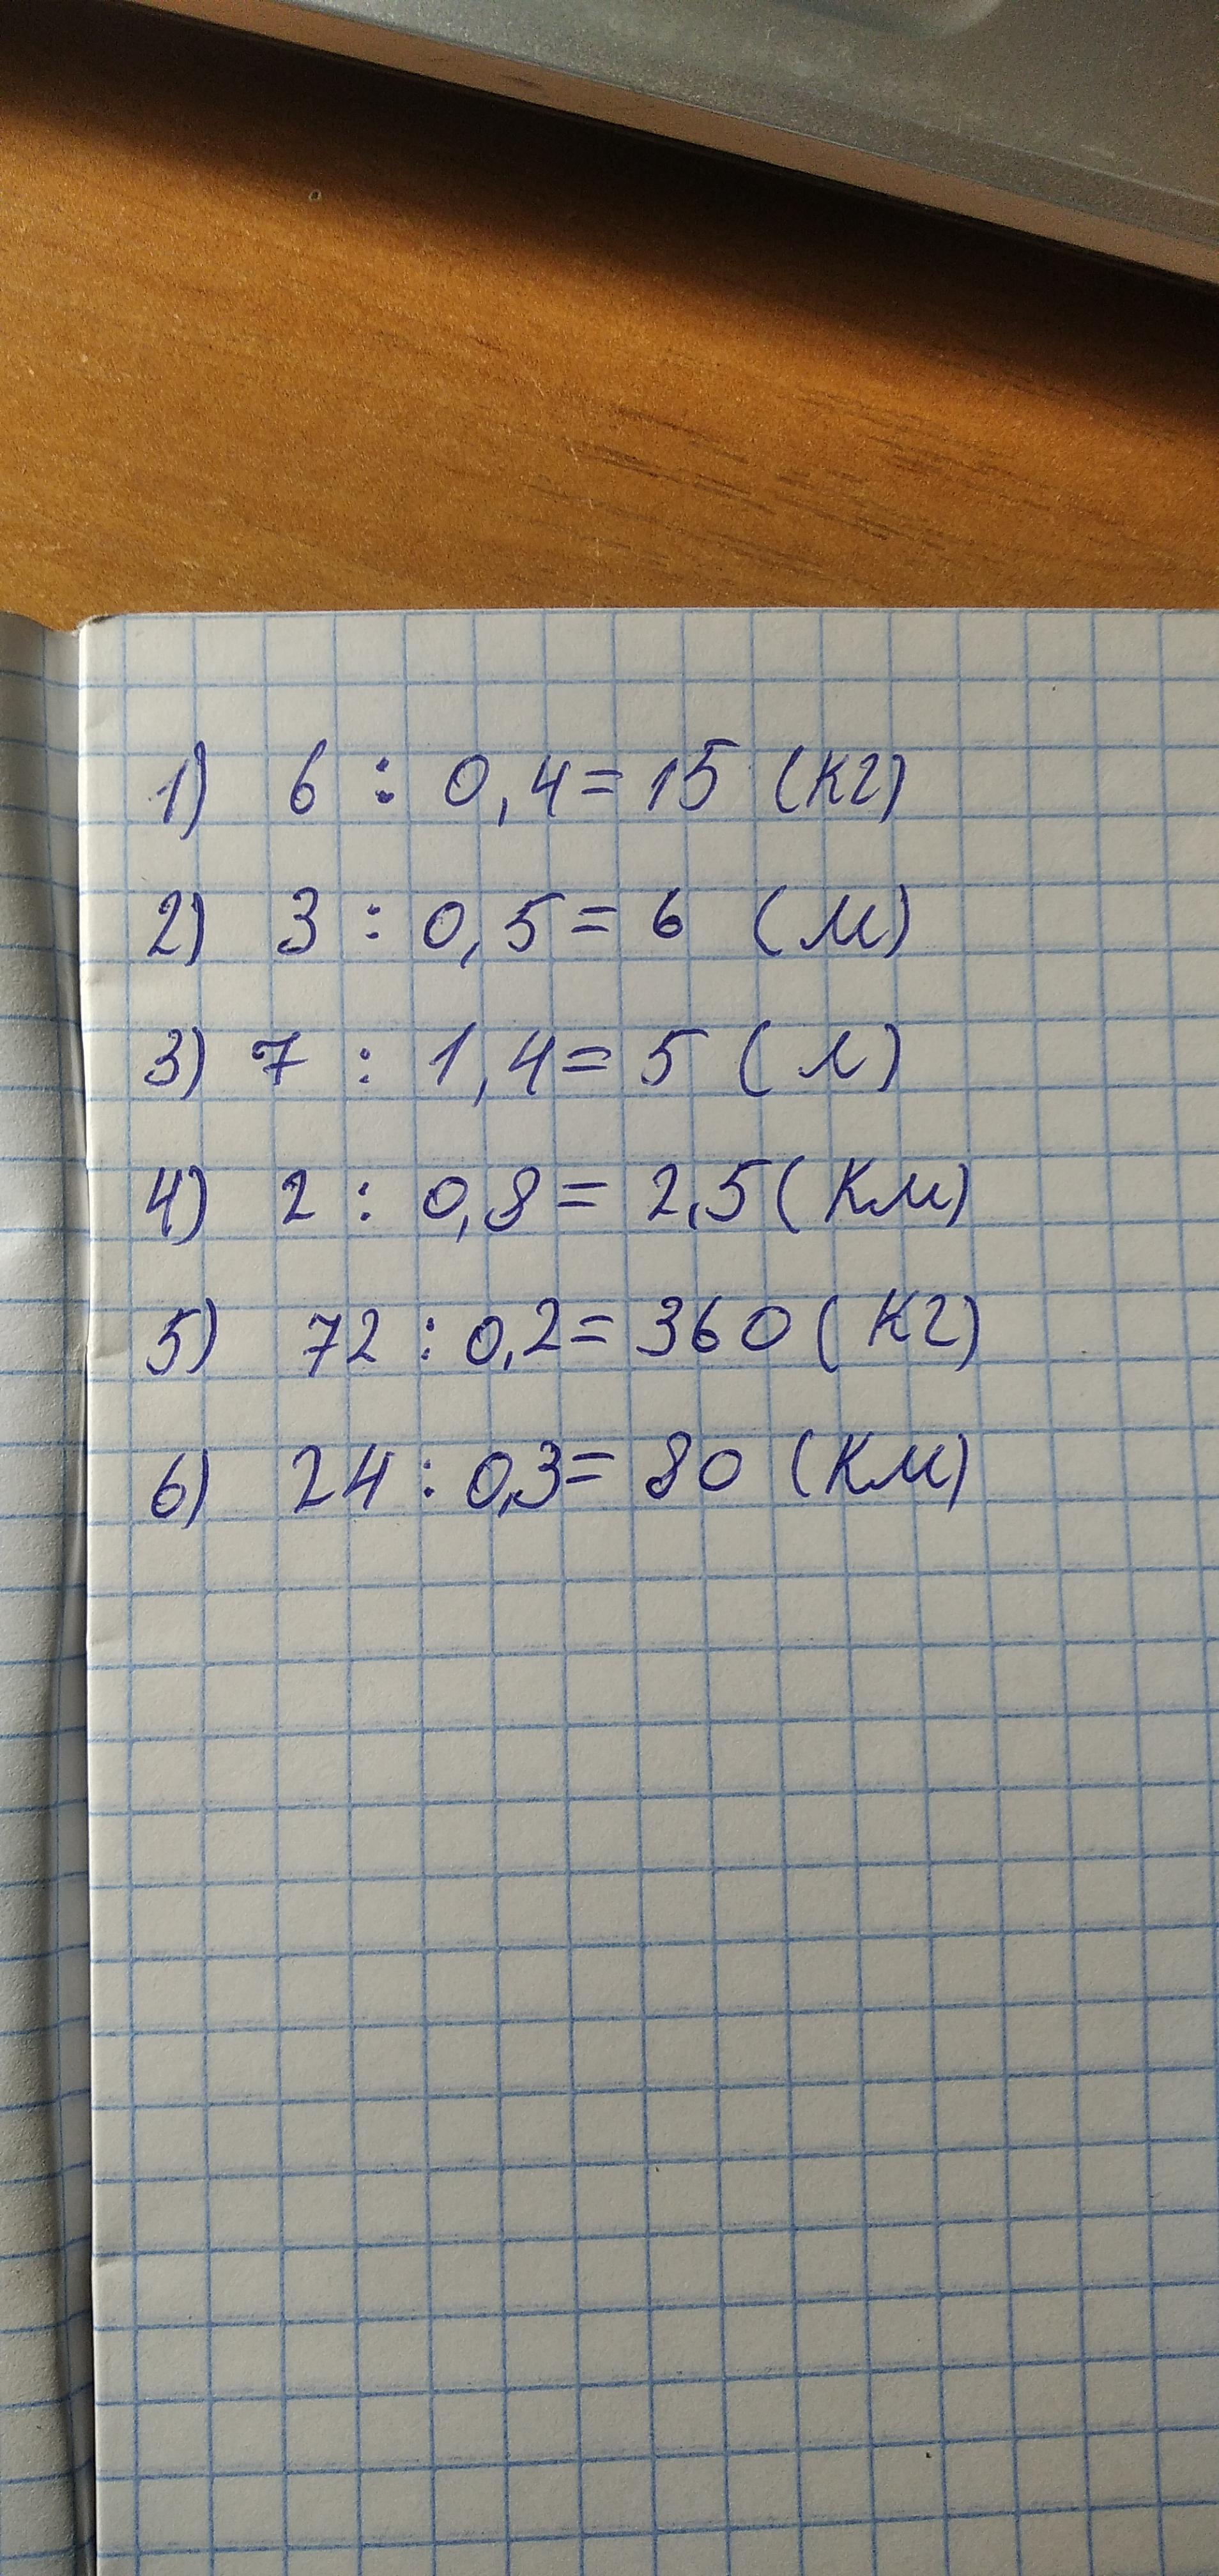 1) 6 : 0,4 = 15 (кг)
2) 3 : 0,5 = 6 (м)
3) 7 : 1,4 = 5 (л)
4) 2 : 0,8 = 2,5 (км)
5) 72 : 0,2 = 360 (кг)
6) 24 : 0,3 = 80 (км)